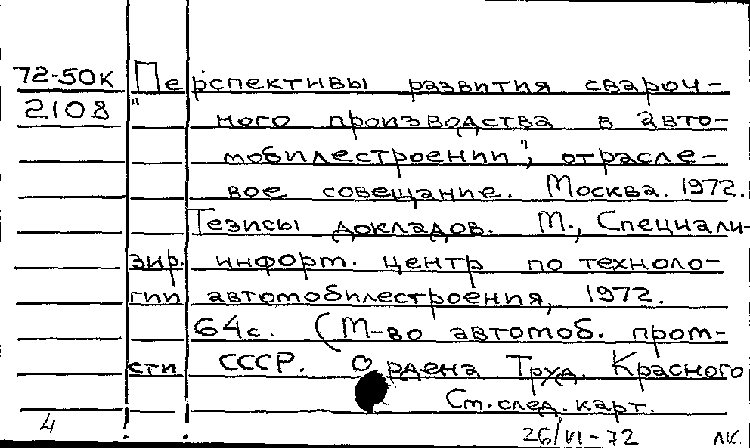 72-50К Перспективы развития свароч-
2108 "ного производства в авто-
мобилестроении", отрасле-
вое совещание. Москва. 1972.
Тезисы докладов. М., Специали-
зир. информ. центр по техноло-
гии автомобилестроения, 1972.
64с. (М-во автомоб. пром-
сти СССР. Ордена Труд. Красного
См. след. карт.
4 26/VI-72 лк.